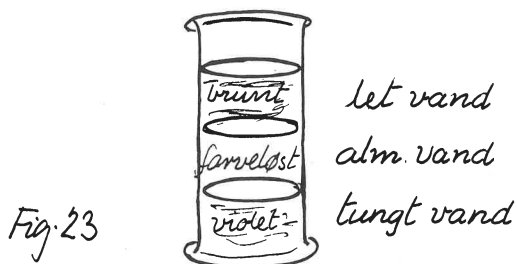 brunt let vand
farveløst alm. vand
violet tungt vand
Fig. 23